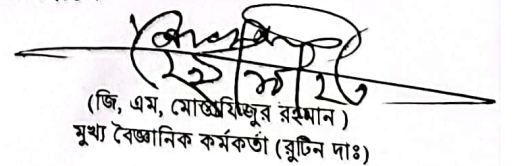 (জি, এম, মোস্তাফিজুর রহমান)
মুখ্য বৈজ্ঞানিক কর্মকর্তা (রুটিন দাঃ)